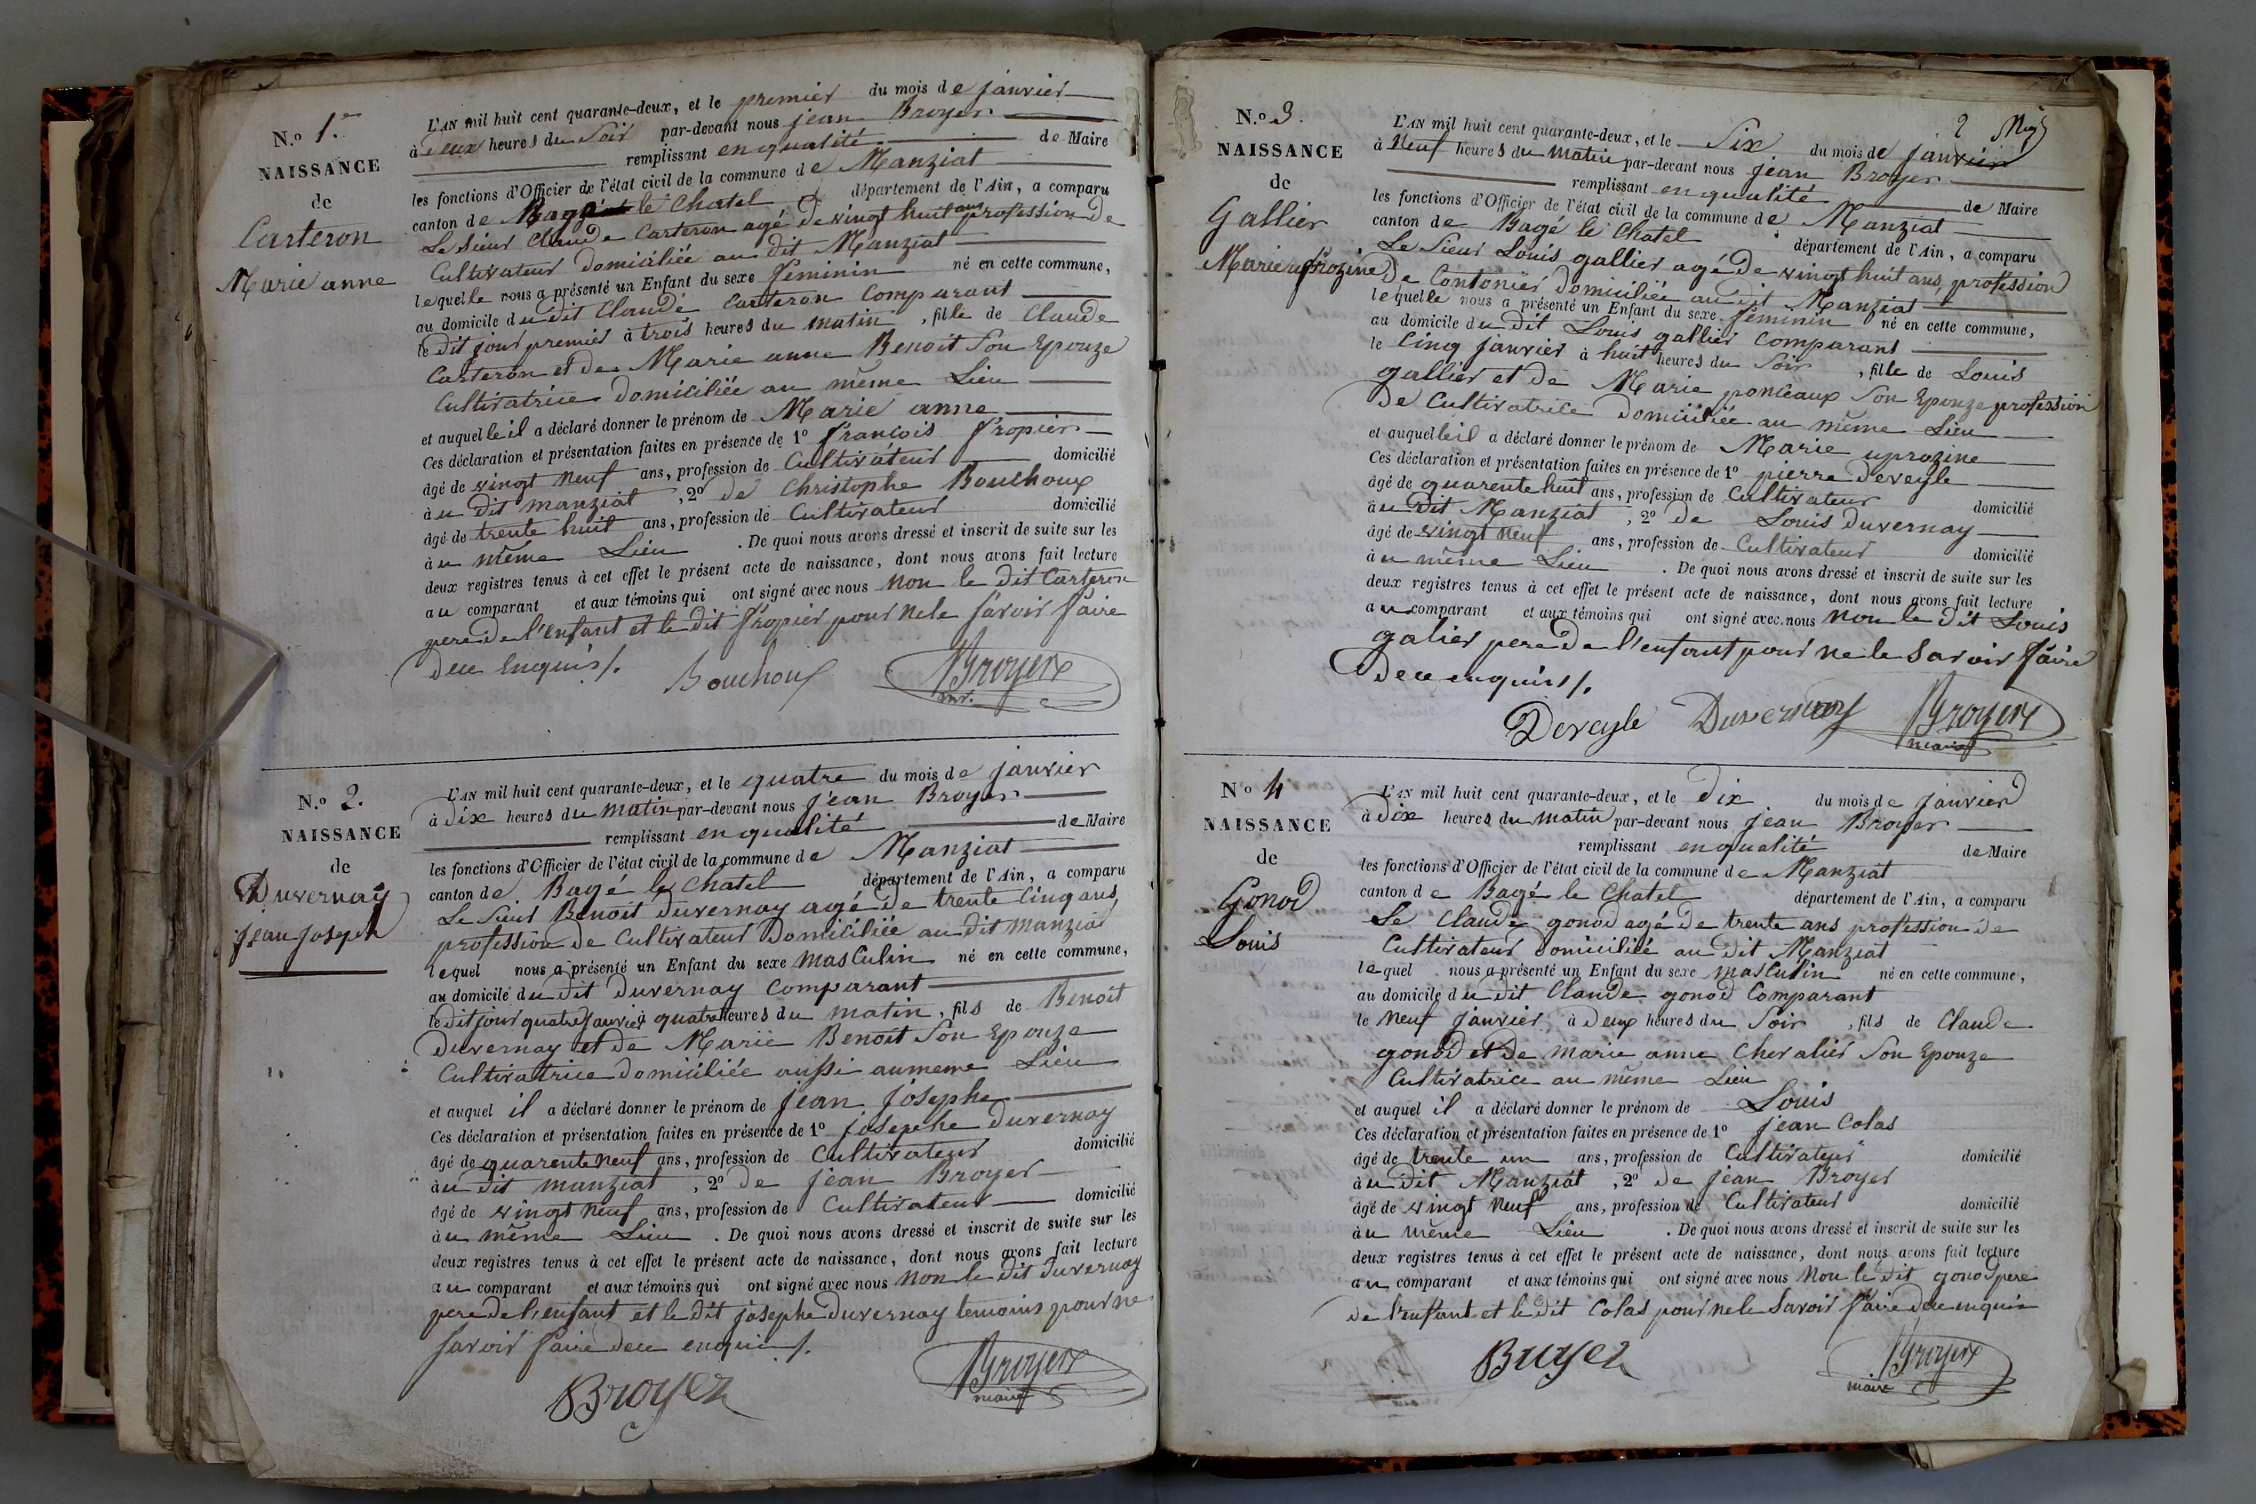 N.o 1.er
NAISSANCE
de
Carteron
Marie anne
L'AN mil huit cent quarante-deux, et le premier du mois de janvier
à deux heures du Soir par-devant nous jean Broyer
remplissant en qualité de Maire
les fonctions d'Officier de l'état civil de la commune de Manziat
canton de Bagé le Chatel département de l'Ain, a comparu
Le Sieur Claude Carteron agé de vingt huit ans profession de
Cultivateur domiciliée au dit Manziat
lequelle nous a présenté un Enfant du sexe féminin né en cette commune,
au domicile du dit Claude Carteron Comparant
le dit jour premier à trois heures du matin, fille de Claude
Carteron et de Marie anne Benoit Son Epouze
Cultivatrice domiciliée au même Lieu
et auquelle il a déclaré donner le prénom de Marie anne
Ces déclaration et présentation faites en présence de 1o françois fropier
âgé de vingt neuf ans, profession de Cultivateur domicilié
à u dit manziat, 2o de Christophe Bouchoux
âgé de trente huit ans, profession de Cultivateur domicilié
à u même Lieu. De quoi nous avons dressé et inscrit de suite sur les
deux registres tenus à cet effet le présent acte de naissance, dont nous avons fait lecture
au comparant et aux témoins qui ont signé avec nous non le dit Carteron
pere de l'enfant et le dit fropier pour ne le savoir faire
dece Enquis /.
Bouchoux Broyer
mr.
N.o 2.
NAISSANCE
de
Duvernay
jean joseph
L'AN mil huit cent quarante-deux, et le quatre du mois de janvier
à dix heures du matin par-devant nous jean Broyer
remplissant en qualité de Maire
les fonctions d'Officier de l'état civil de la commune de Manziat
canton de Bagé le Chatel département de l'Ain, a comparu
Le Sieur Benoit duvernay agé de trente Cinq ans
profession de Cultivateur domiciliée au dit manziat
lequel nous a présenté un Enfant du sexe masculin né en cette commune,
au domicile du dit duvernay Comparant
le dit jour quatre janvier à quatre heures du matin, fils de Benoit
duvernay et de Marie Benoit Son Epouze
Cultivatrice domiciliée aussi au meme Lieu
et auquel il a déclaré donner le prénom de jean josephe
Ces déclaration et présentation faites en présence de 1o josephe duvernay
âgé de quarente neuf ans, profession de Cultivateur domicilié
à u dit manziat, 2o de jean Broyer
âgé de vingt neuf ans, profession de Cultivateur domicilié
à u même Lieu. De quoi nous avons dressé et inscrit de suite sur les
deux registres tenus à cet effet le présent acte de naissance, dont nous avons fait lecture
au comparant et aux témoins qui ont signé avec nous non le dit duvernay
pere de l'enfant et le dit josephe duvernay temoins pour ne
savoir faire dece enquis /.
Broyer Broyer
maire
2
N.o 3.
NAISSANCE
de
Gallier
Marie uprozine
L'AN mil huit cent quarante-deux, et le Six du mois de janvier
à neuf heures du matin par-devant nous jean Broyer
remplissant en qualité de Maire
les fonctions d'Officier de l'état civil de la commune de Manziat
canton de Bagé le Chatel département de l'Ain, a comparu
Le Sieur Louis gallier agé de vingt huit ans, profession
de Contonier domiciliée au dit Manziat
lequelle nous a présenté un Enfant du sexe féminin né en cette commune,
au domicile du dit Louis gallier Comparant
le Cinq janvier à huit heures du Soir, fille de Louis
gallier et de Marie ponceaux Son Epouze profession
de Cultivatrice domiciliée au même Lieu
et auquelle il a déclaré donner le prénom de Marie uprozine
Ces déclaration et présentation faites en présence de 1o pierre deveyle
âgé de quarente huit ans, profession de Cultivateur domicilié
à u dit Manziat, 2o de Louis duvernay
âgé de vingt neuf ans, profession de Cultivateur domicilié
à u même Lieu. De quoi nous avons dressé et inscrit de suite sur les
deux registres tenus à cet effet le présent acte de naissance, dont nous avons fait lecture
au comparant et aux témoins qui ont signé avec nous non le dit Louis
galier pere de l'enfant pour ne le savoir faire
dece enquis /.
Deveyle Duvernay Broyer
maire
No 4
NAISSANCE
de
Gonod
Louis
L'AN mil huit cent quarante-deux, et le dix du mois de janvier
à dix heures du matin par-devant nous jean Broyer
remplissant en qualité de Maire
les fonctions d'Officier de l'état civil de la commune de Manziat
canton de Bagé le Chatel département de l'Ain, a comparu
Le Claude gonod agé de trente ans profession de
Cultivateur domiciliée au dit Manziat
lequel nous a présenté un Enfant du sexe masculin né en cette commune,
au domicile du dit Claude gonod Comparant
le neuf janvier, à deux heures du Soir, fils de Claude
gonod et de marie anne Chevalier Son Epouze
Cultivatrice au même Lieu
et auquel il a déclaré donner le prénom de Louis
Ces déclaration et présentation faites en présence de 1o jean Colas
âgé de trente un ans, profession de Cultivateur domicilié
à u dit Manziat, 2o de jean Broyer
âgé de vingt neuf ans, profession de Cultivateur domicilié
à u même Lieu. De quoi nous avons dressé et inscrit de suite sur les
deux registres tenus à cet effet le présent acte de naissance, dont nous avons fait lecture
au comparant et aux témoins qui ont signé avec nous non le dit gonod pere
de l'enfant et le dit Colas pour ne le savoir faire dece enquis
Broyer Broyer
maire